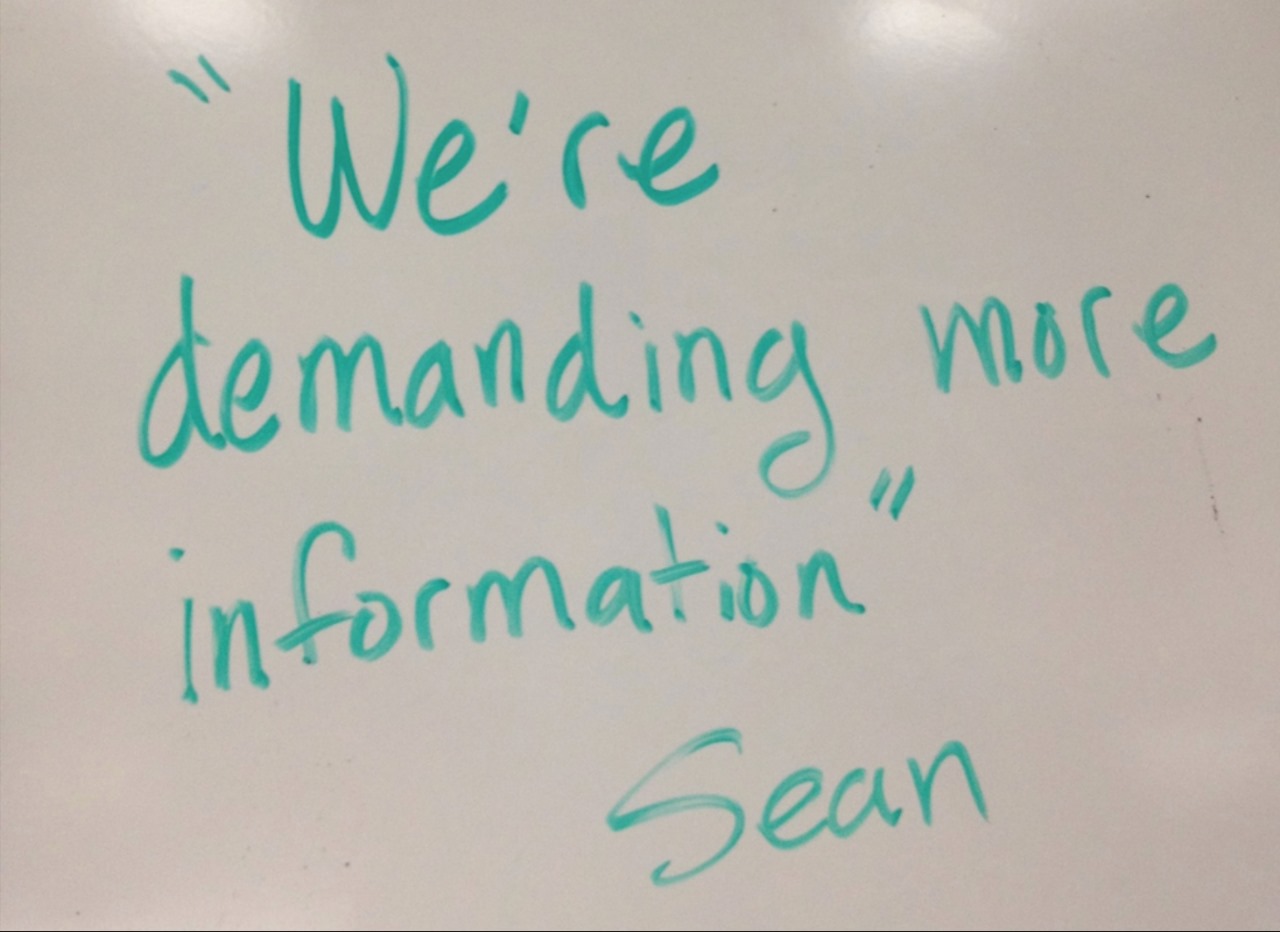 "We're
demanding more
information"
Sean